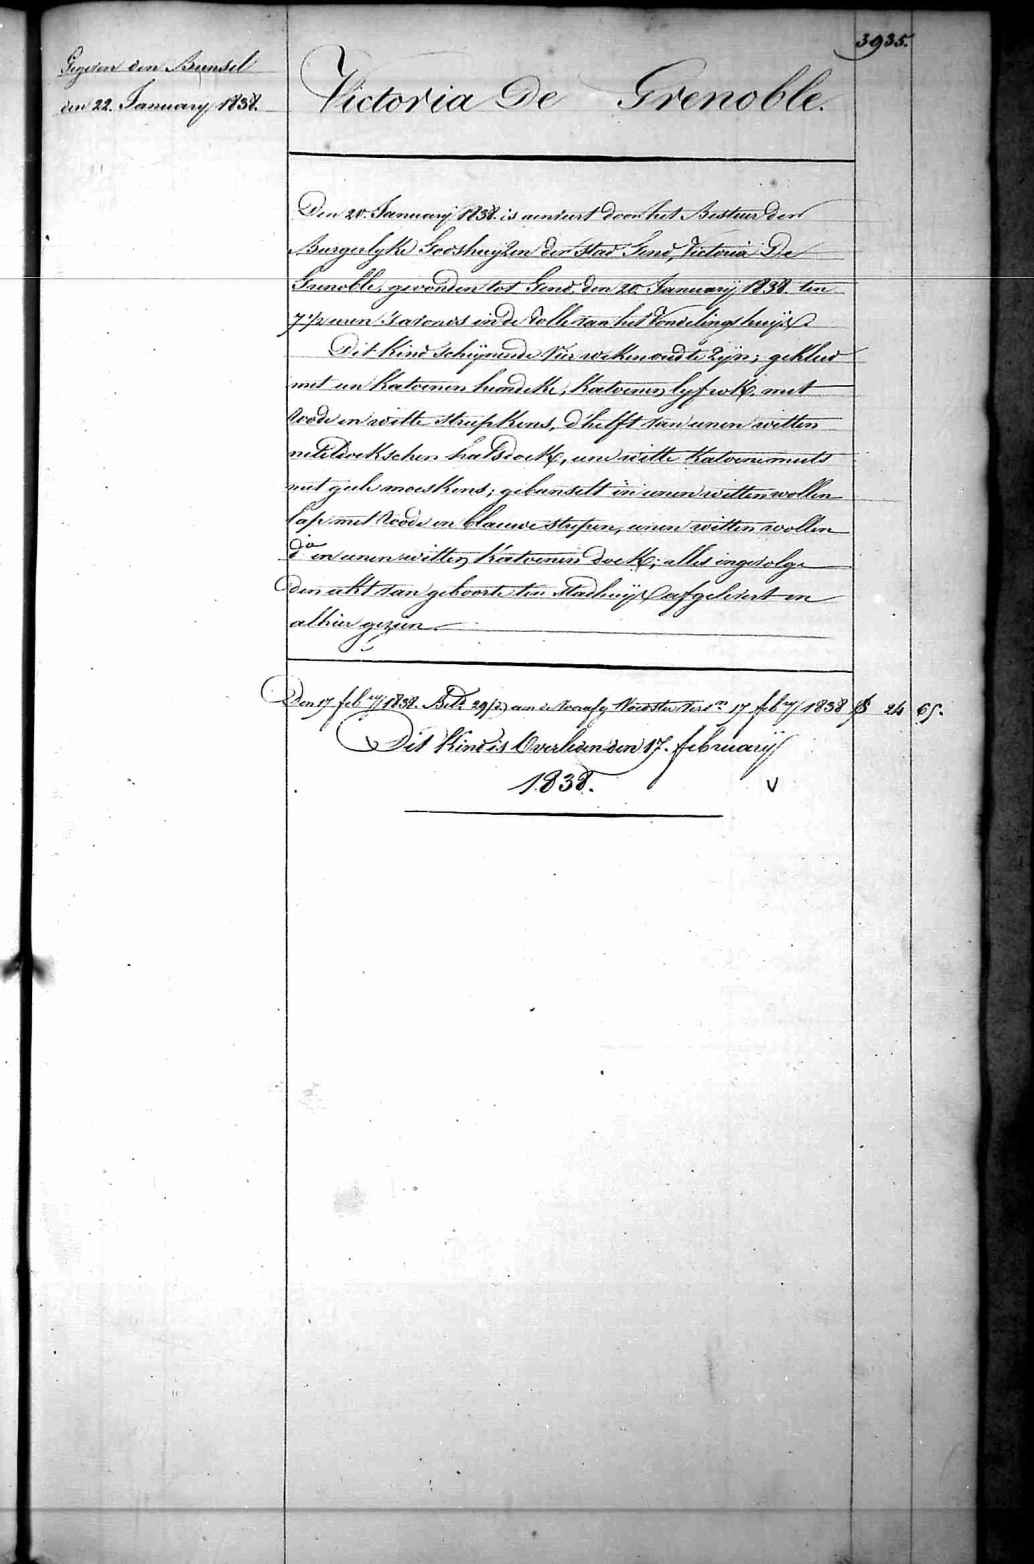 3935.
Gegeven den Bunsel
den 22. January 1838.
Victoria De Grenoble.
Den 20. January 1838. is aenveert door het Bestuer der
Burgerlyke Godshuyzen der Stad Gend, Victoria De
Grenoble, gevonden tot Gend, den 20. January 1838. ten
7 1/2 uren s'avonds in de Rolle van het Vondelinghuys.
Dit Kind schynende vier weken oud te zyn; gekleed
met een Katoenen hemdeke, Katoenen lyfrok, met
roode en witte streepkens, d'helft van eenen witten
neteldoekschen halsdoek, eene witte Katoene muts
met geele moeskens; gebunselt in eenen witten wollen
lap met roode en blauwe strepen, eenen witten wollen
do en eenen witten Katoenen doek; alles ingevolge
den akt van geboorte ten Stadhuyse afgelevert en
alhier gezien.
Den 17 febry 1838. Bet. 29 aen de Voorster 17 febry 1838 24 65.
Dit Kind is Overleden den 17. february
1838. V